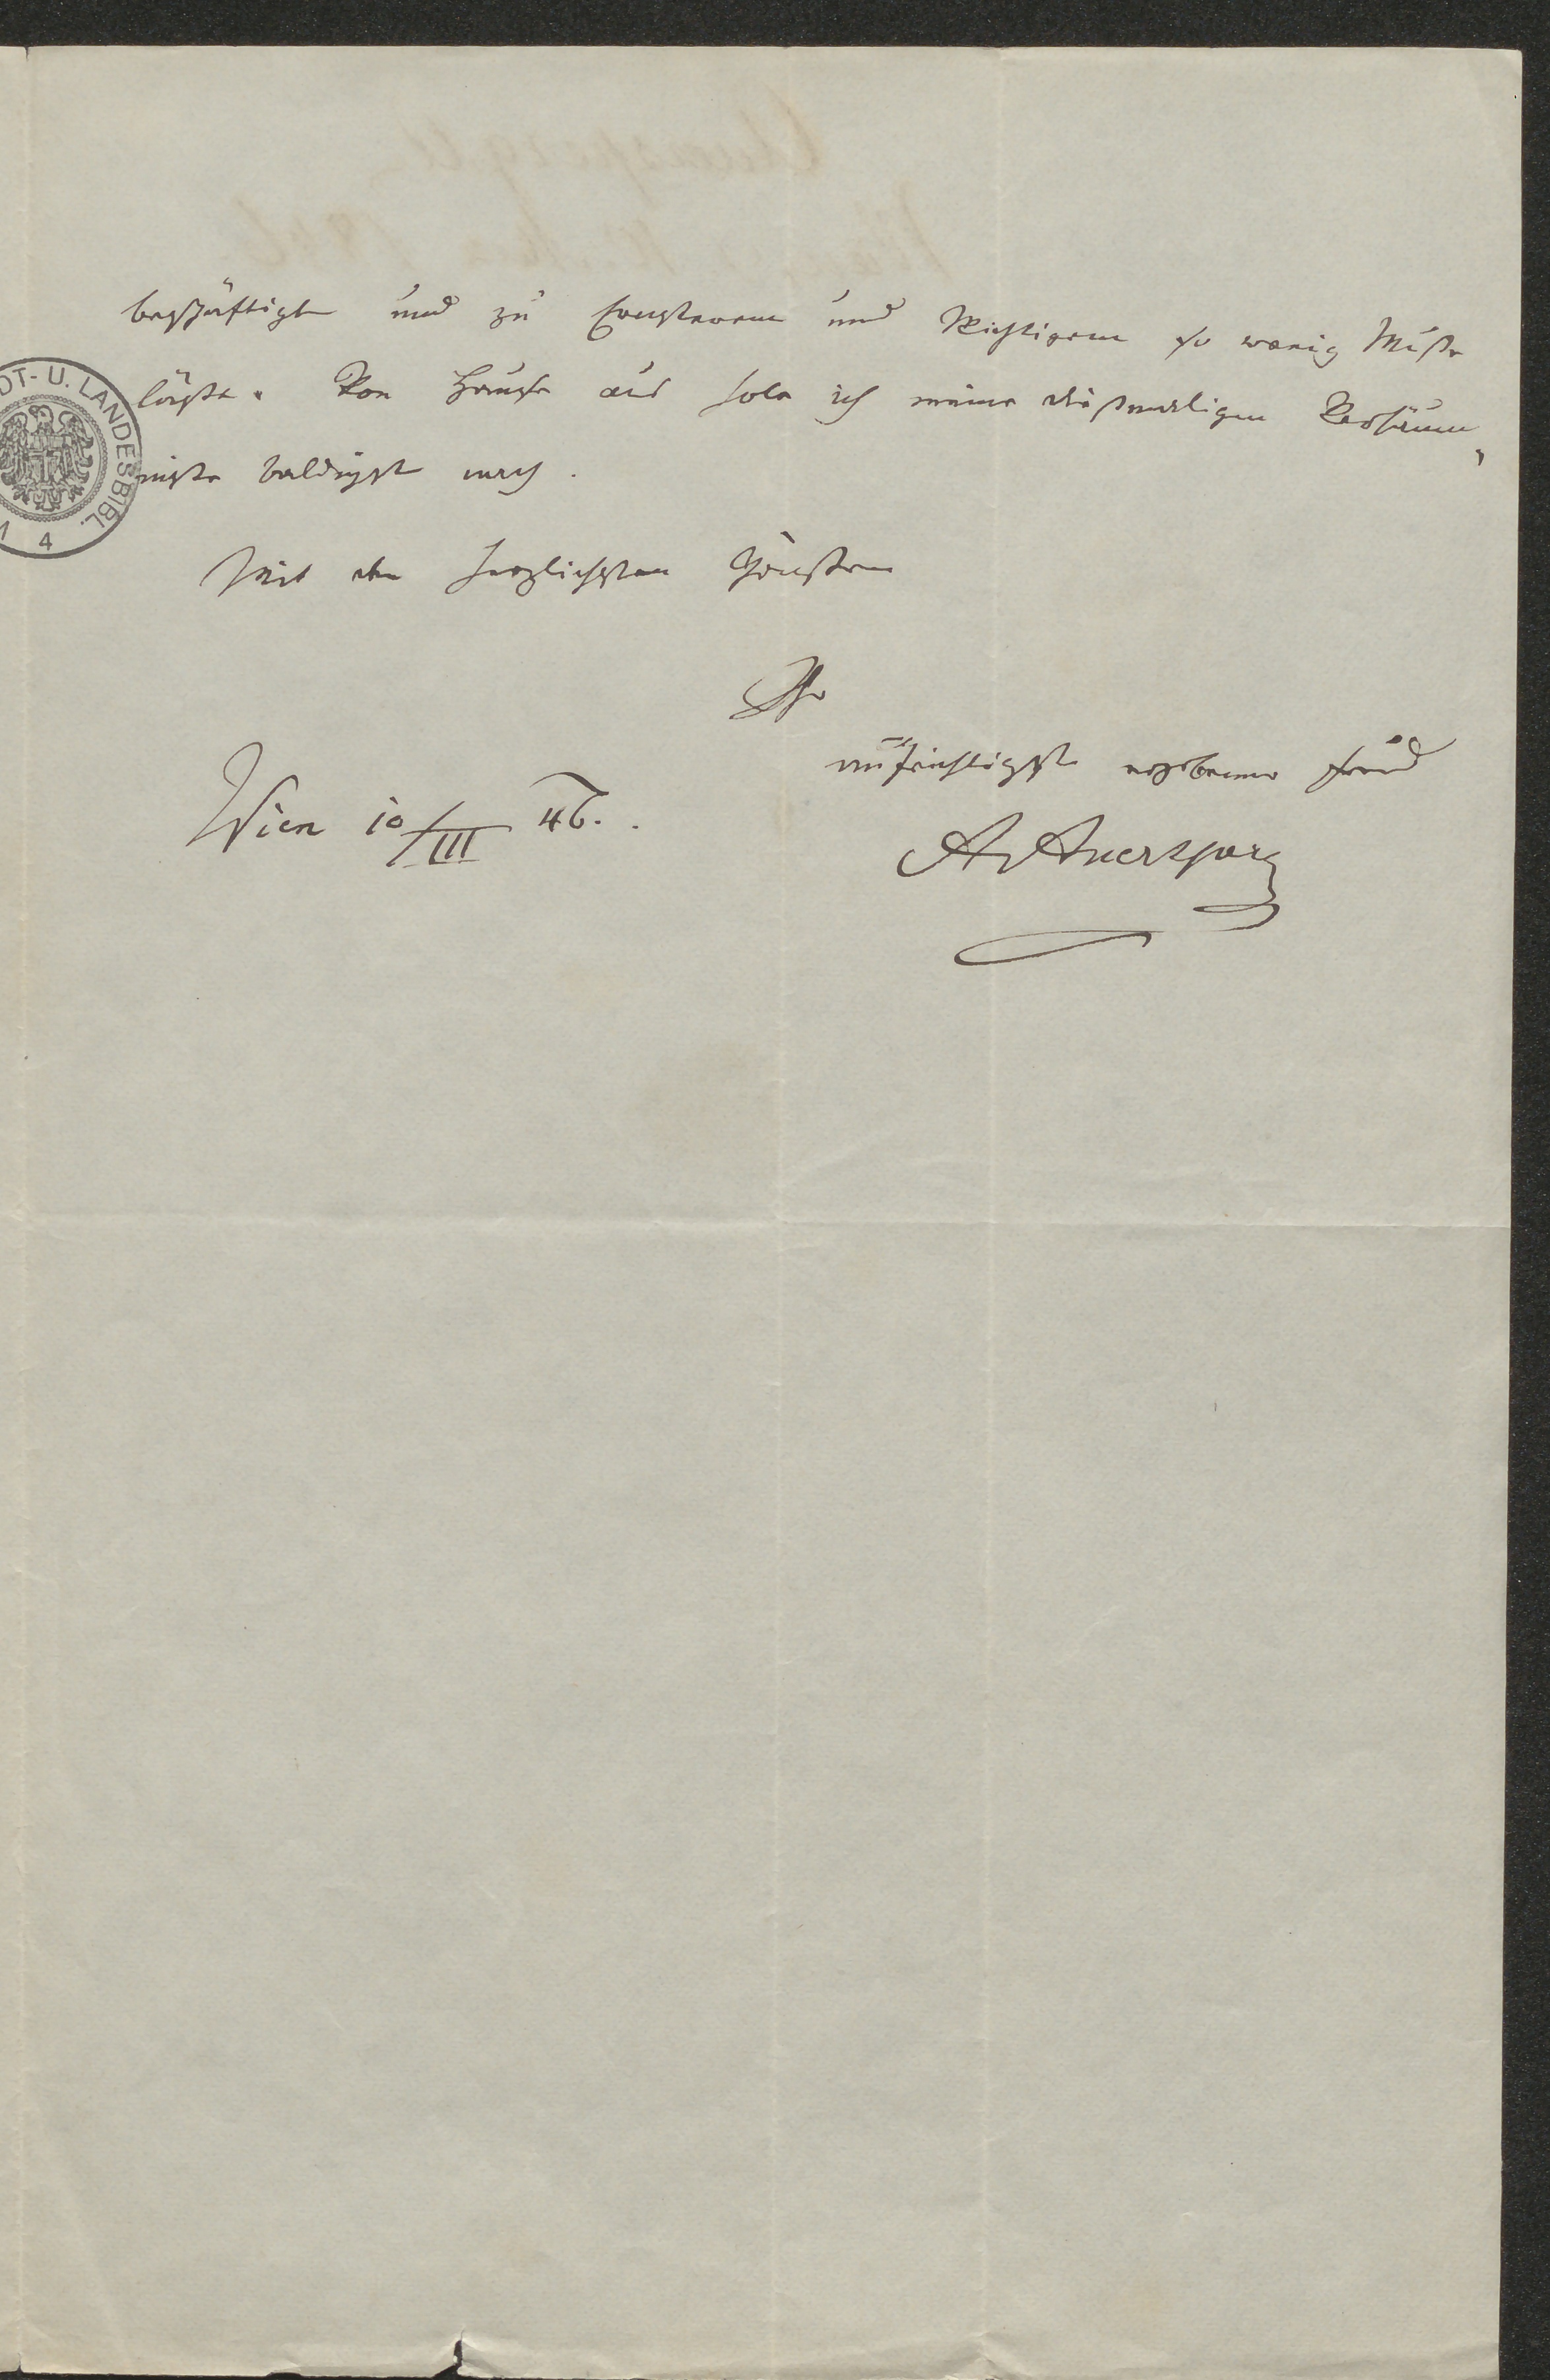 beschäftigt und zu Ernsterem und Wichtigerem so wenig Muße
läßt. Von Hause aus hole ich meine dießmaligen Versäum-
niße baldigst nach.
Mit den herzlichsten Grüßen
Ihr
aufrichtigst ergebener Freund
AvAuersperg
Wien 10/III 46.
DT- U. LANDESBIBL.
4